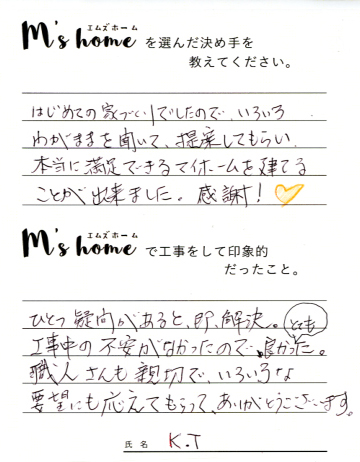 エムズホーム
M's home を選んだ決め手を
教えてください。
はじめての家づくりでしたので、いろいろ
わがままを聞いて、提案してもらい、
本当に満足できるマイホームを建てる
ことが出来ました。感謝!
エムズホーム
M's home で工事をして印象的
だったこと。
ひとつ疑問があると、即、解決。とても
工事中の不安がなかったので、良かった。
職人さんも親切で、いろいろな
要望にも応えてもらって、ありがとうございます。
氏名 K.T